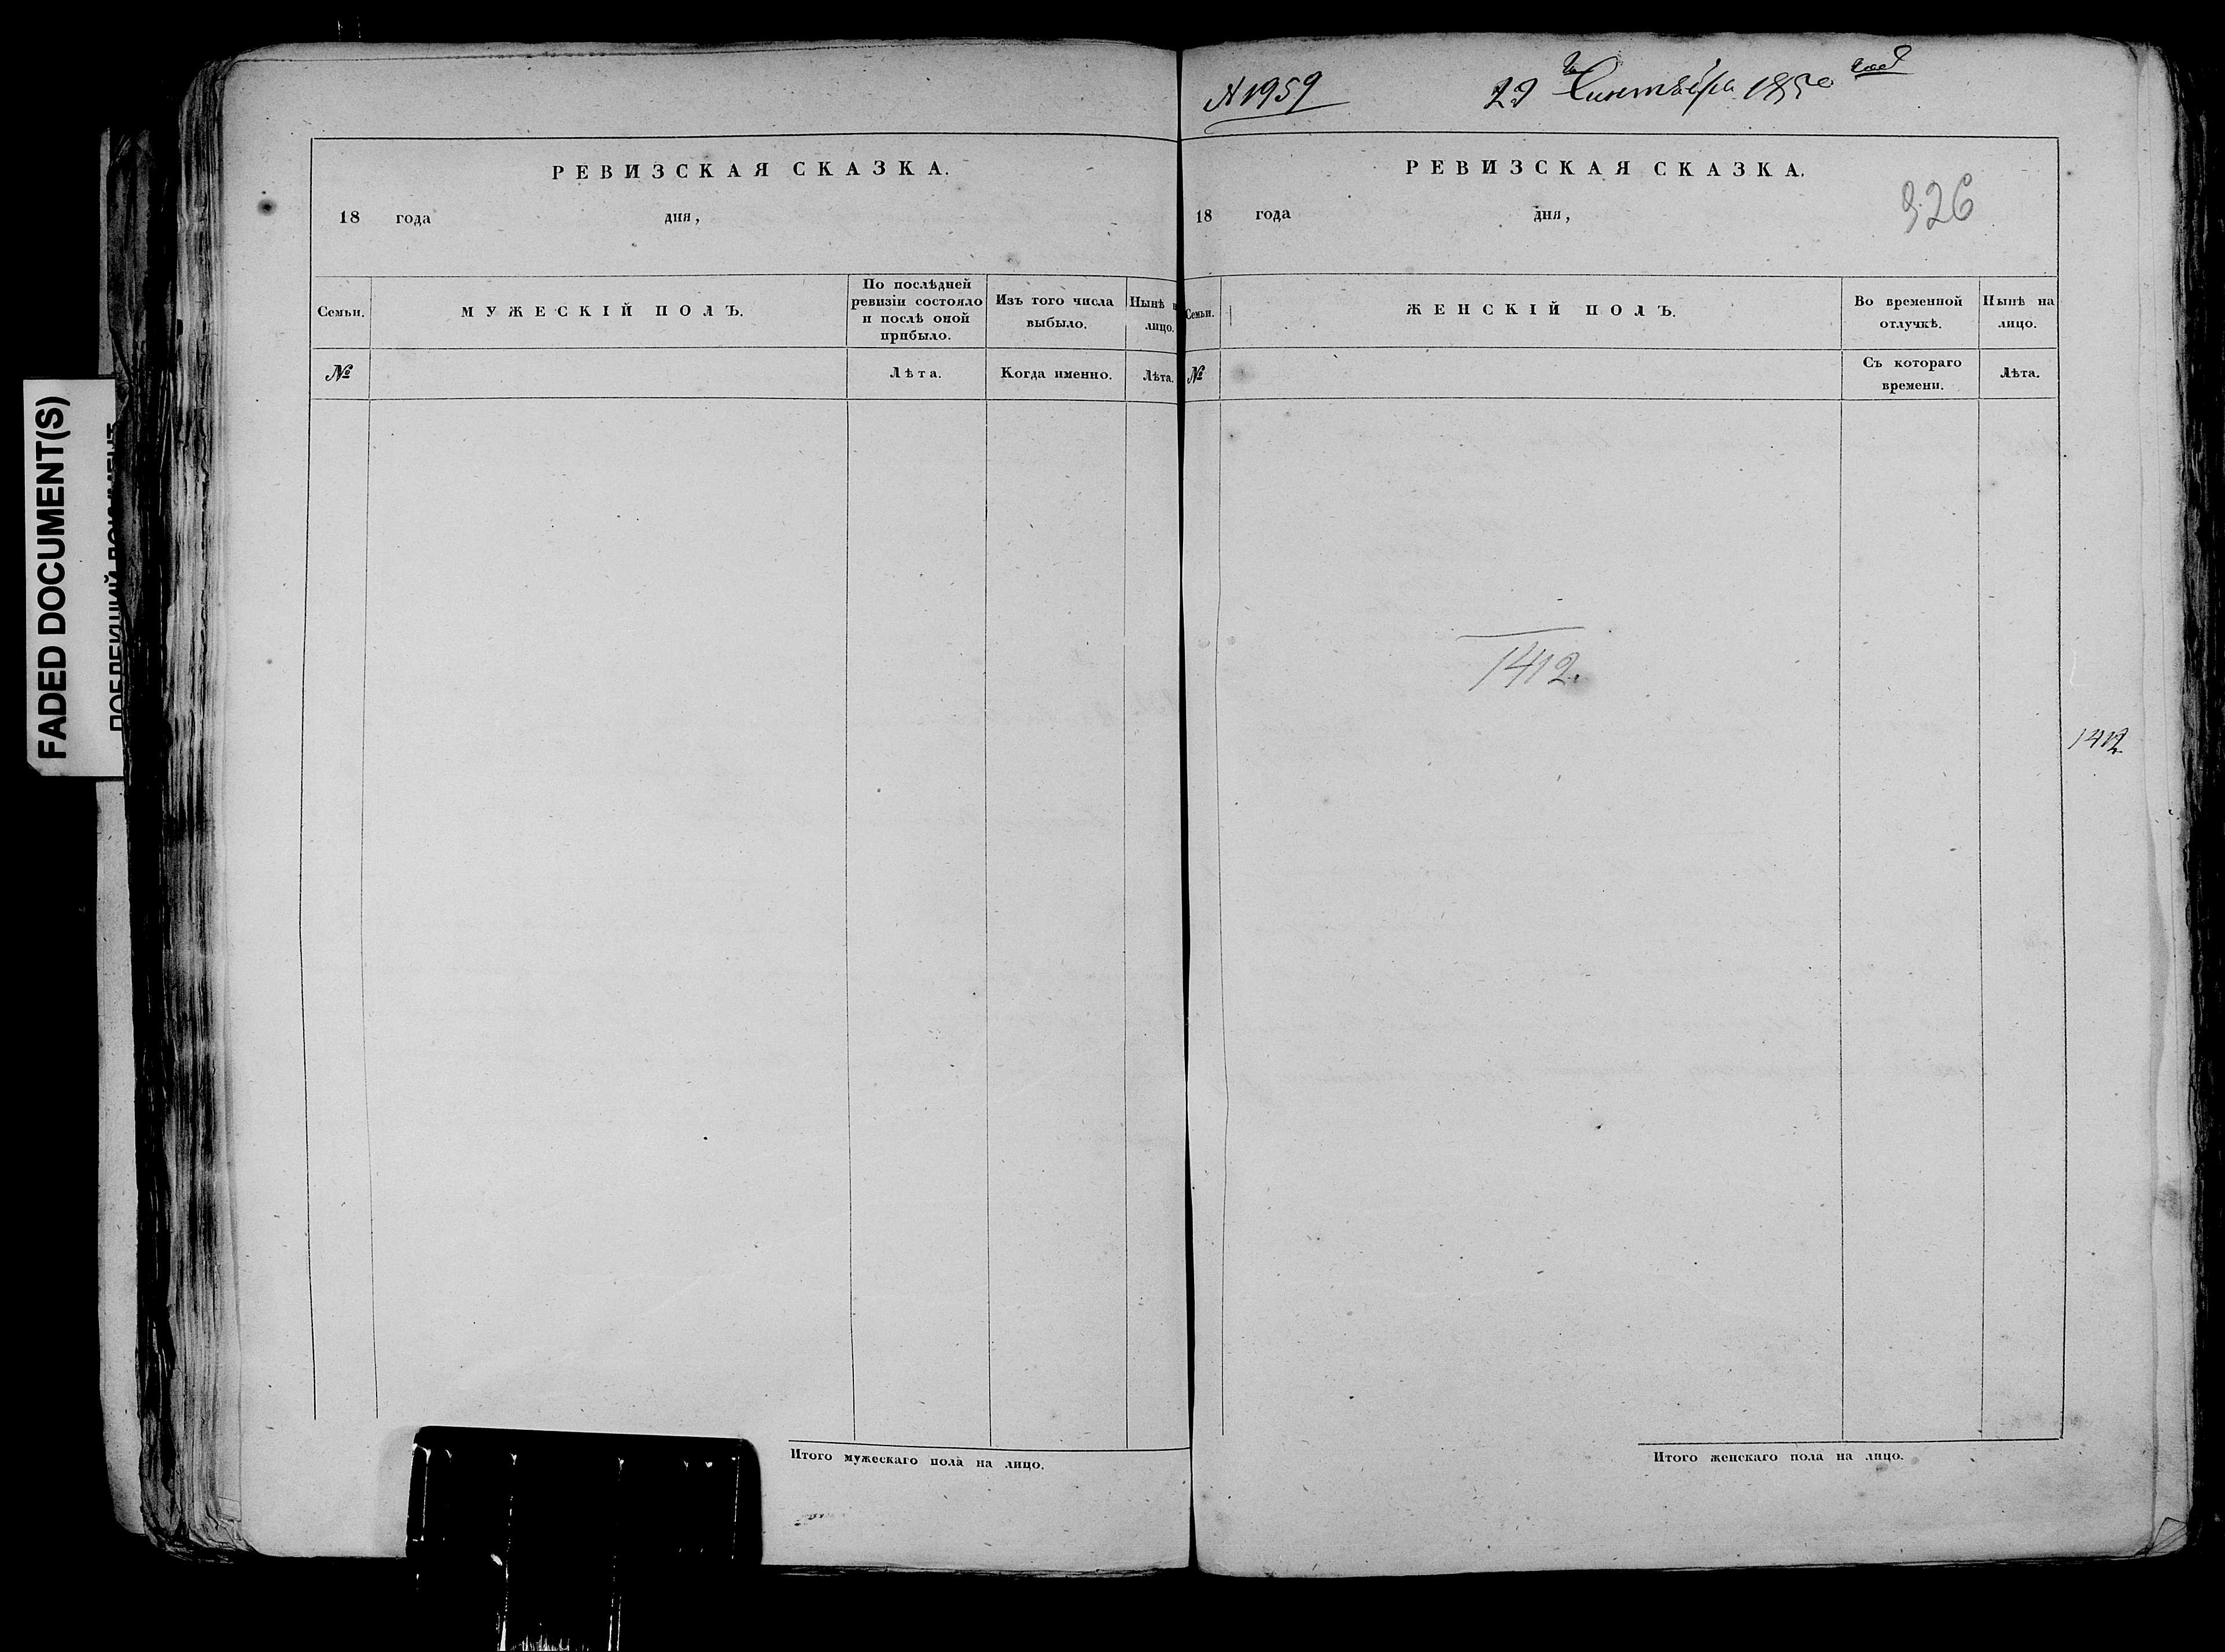 FADED DOCUMENT(S)
РЕВИЗСКАЯ СКАЗКА.
18 года дня,
Семьи.
МУЖЕСКІЙ ПОЛЪ.
По послѣдней
ревизіи состояло
и послѣ оной
прибыло.
Изъ того числа
выбыло.
Нынѣ
лицо.
№
Лѣта.
Когда именно.
Лѣта.
Итого мужескаго пола на лицо.
№ 1959
29 Сентября 1850 года
РЕВИЗСКАЯ СКАЗКА.
326
18 года дня,
Семьи.
ЖЕНСКІЙ ПОЛЪ.
Во временной
отлучкѣ.
Нынѣ на
лицо.
№
Съ котораго
времени.
Лѣта.
1412.
1412
Итого женскаго пола на лицо.